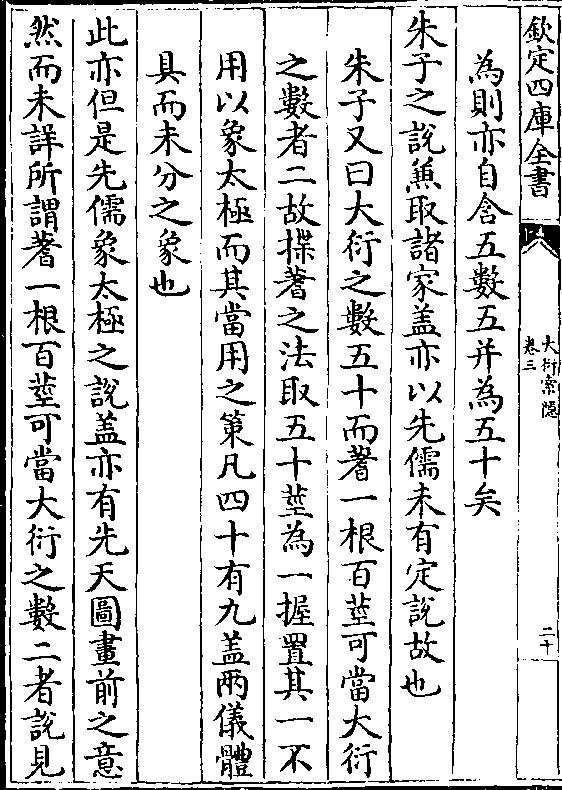 欽定四庫全書
大衍索隱
卷三
二十
為則亦自含五數五并為五十矣
朱子之說兼取諸家盖亦以先儒未有定說故也
朱子又曰大衍之數五十而蓍一根百莖可當大衍
之數者二故揲蓍之法取五十莖為一握置其一不
用以象太極而其當用之策凡四十有九盖兩儀體
具而未分之象也
此亦但是先儒象太極之說盖亦有先天圖畫前之意
然而未詳所謂蓍一根百莖可當大衍之數二者說見